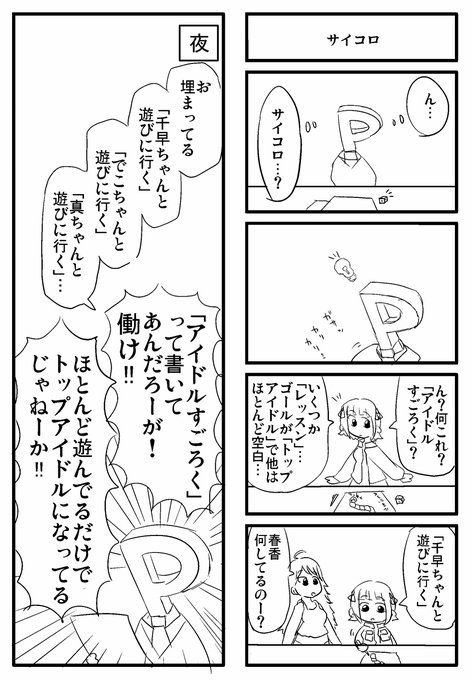 サイコロ
ん…
サイコロ…?
カリ
カリ
ん?何これ?
「アイドル
すごろく」?
いくつか
「レッスン」…
ゴールが「トップ
アイドル」で他は
ほとんど空白…
「千早ちゃんと
遊びに行く」
春香
何してるのー?
夜
お
埋まってる
「千早ちゃんと
遊びに行く」
「でこちゃんと
遊びに行く」
「真ちゃんと
遊びに行く」…
「アイドルすごろく」
って書いて
あんだろーが!
働け!!
ほとんど遊んでるだけで
トップアイドルになってる
じゃねーか!!